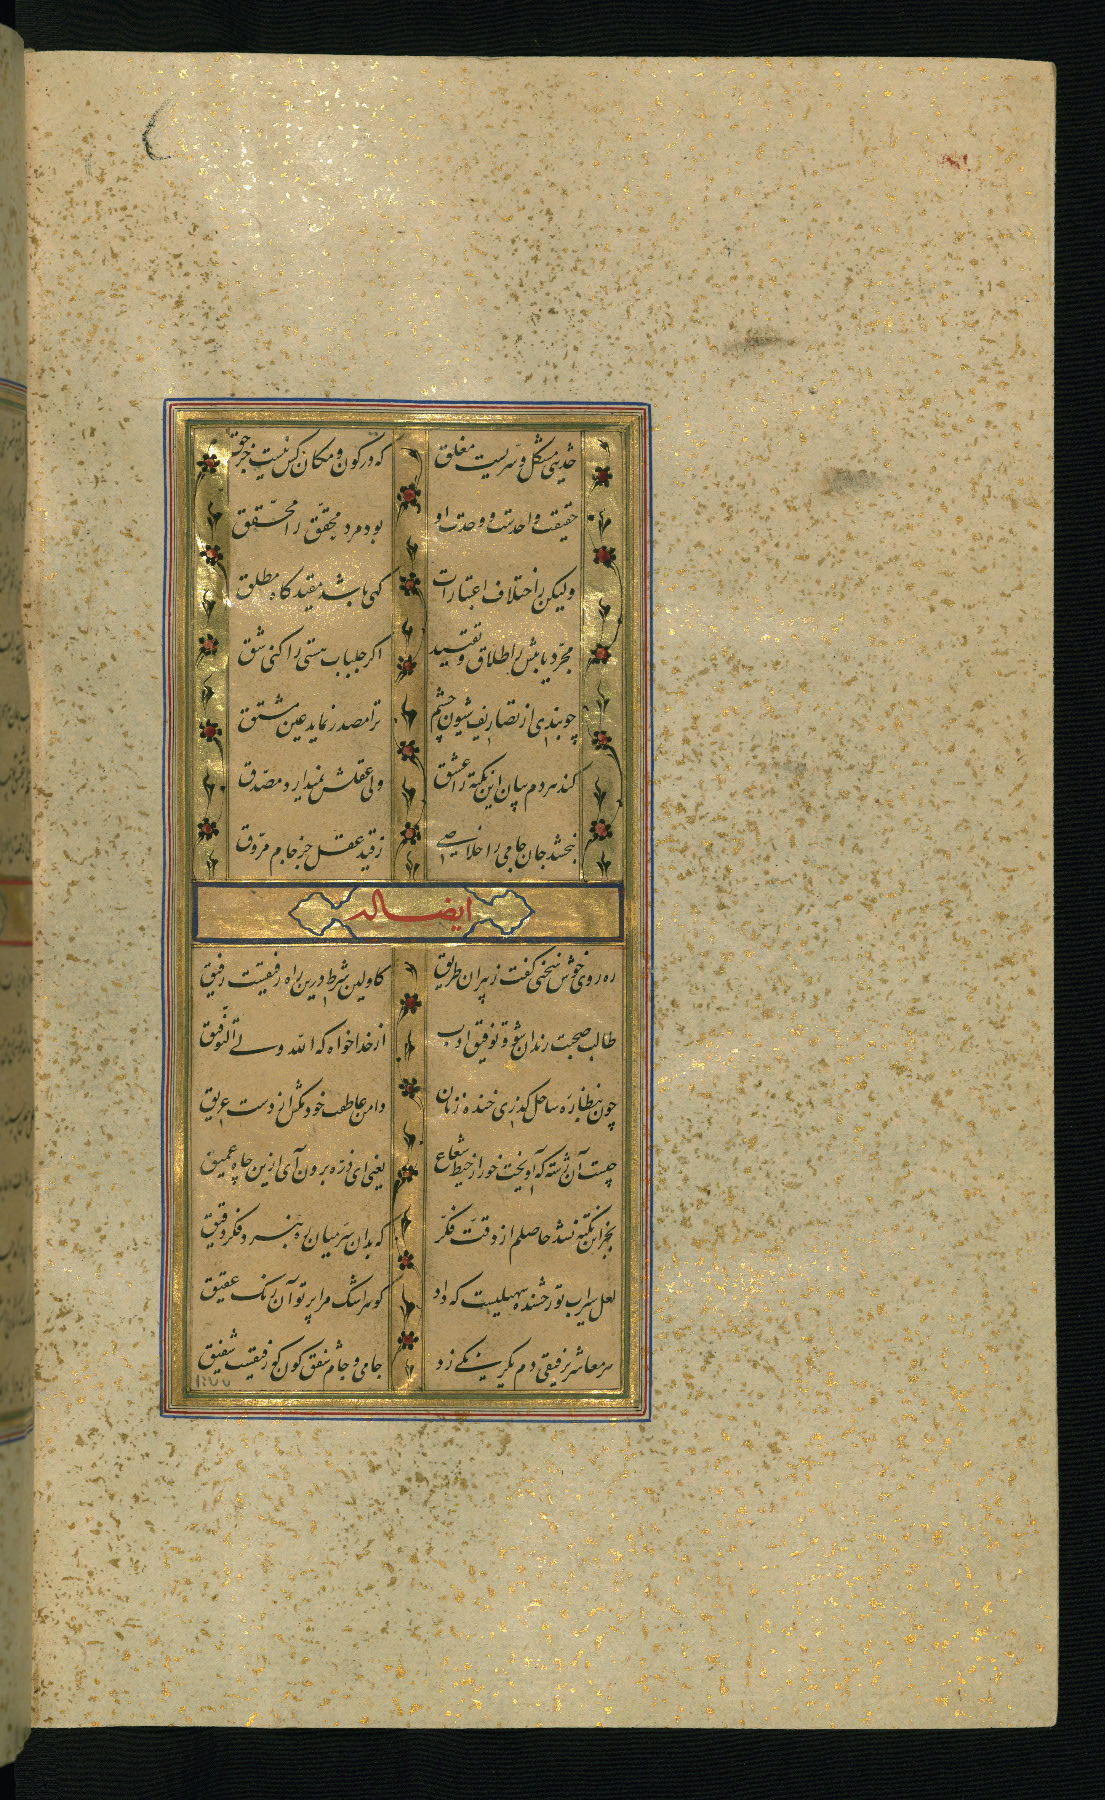 حدیثی مشکل و سریست مغلق که در کون و مکان کس نیست جز حق
حقیقت واحدست و وحدت او بود مرد محقق را محقق
ولیکن ز اختلاف اعتبارات کهی باشد مقید کاه مطلق
مجرد یابیش ز اطلاق و تقیید اکر جلباب هستی را کنی شق
چو بندی از تصاریف شیون چشم ترا مصدر نماید عین مشتق
کند هر دم بیان این نکته را عشق ولی عقلش نمیدارد مصدق
نبخشد جان جامی را خلاصی ز قید عقل جز جام مروق
ایضا له
ره روی خوش سخنی کفت ز پیران طریق کاولین شرط درین راه رفیقست رفیق
طالب صحبت رندان شو و توفیق ادب از خدا خواه که الله ولی التوفیق
چون بنظاره ساحل کذری خنده زنان دامن عاطفت خود مکش از دست غریق
چیست آن رشته که آویخت خور از خیط شعاع یعنی ای ذره برون آی ازین چاه عمیق
بجز این نکته نشد حاصلم از دقت فکر که بدان سر میان ره نبرد فکر دقیق
لعل سیراب تو رخشنده سهیلیست که داد کوهر اشک مرا پرتو آن رنک عقیق
سر معاشر برفیقی دم یکرنکی زد جامی و جام شفق کون کو رفیقیست شفیق